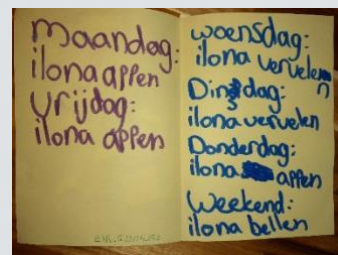 maandag:
ilona appen
vrijdag:
ilona appen
woensdag:
ilona vervelen
Dinsdag:
ilona vervelen
Donderdag:
ilona appen
Weekend:
ilona bellen